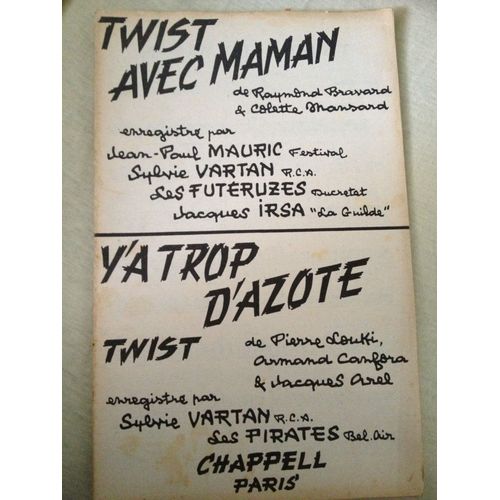 TWIST
AVEC MAMAN
de Raymond Bravard
& Colette Mansard
enregistré par
Jean-Paul MAURIC Festival
Sylvie VARTAN R.C.A.
Les FUTERUZES Ducretet
Jacques IRSA "La Guilde"
Y'A TROP
D'AZOTE
TWIST
de Pierre Louki,
Armand Canfora
& Jacques Arel
enregistré par
Sylvie VARTAN R.C.A.
Les PIRATES Bel.Air
CHAPPELL
PARIS